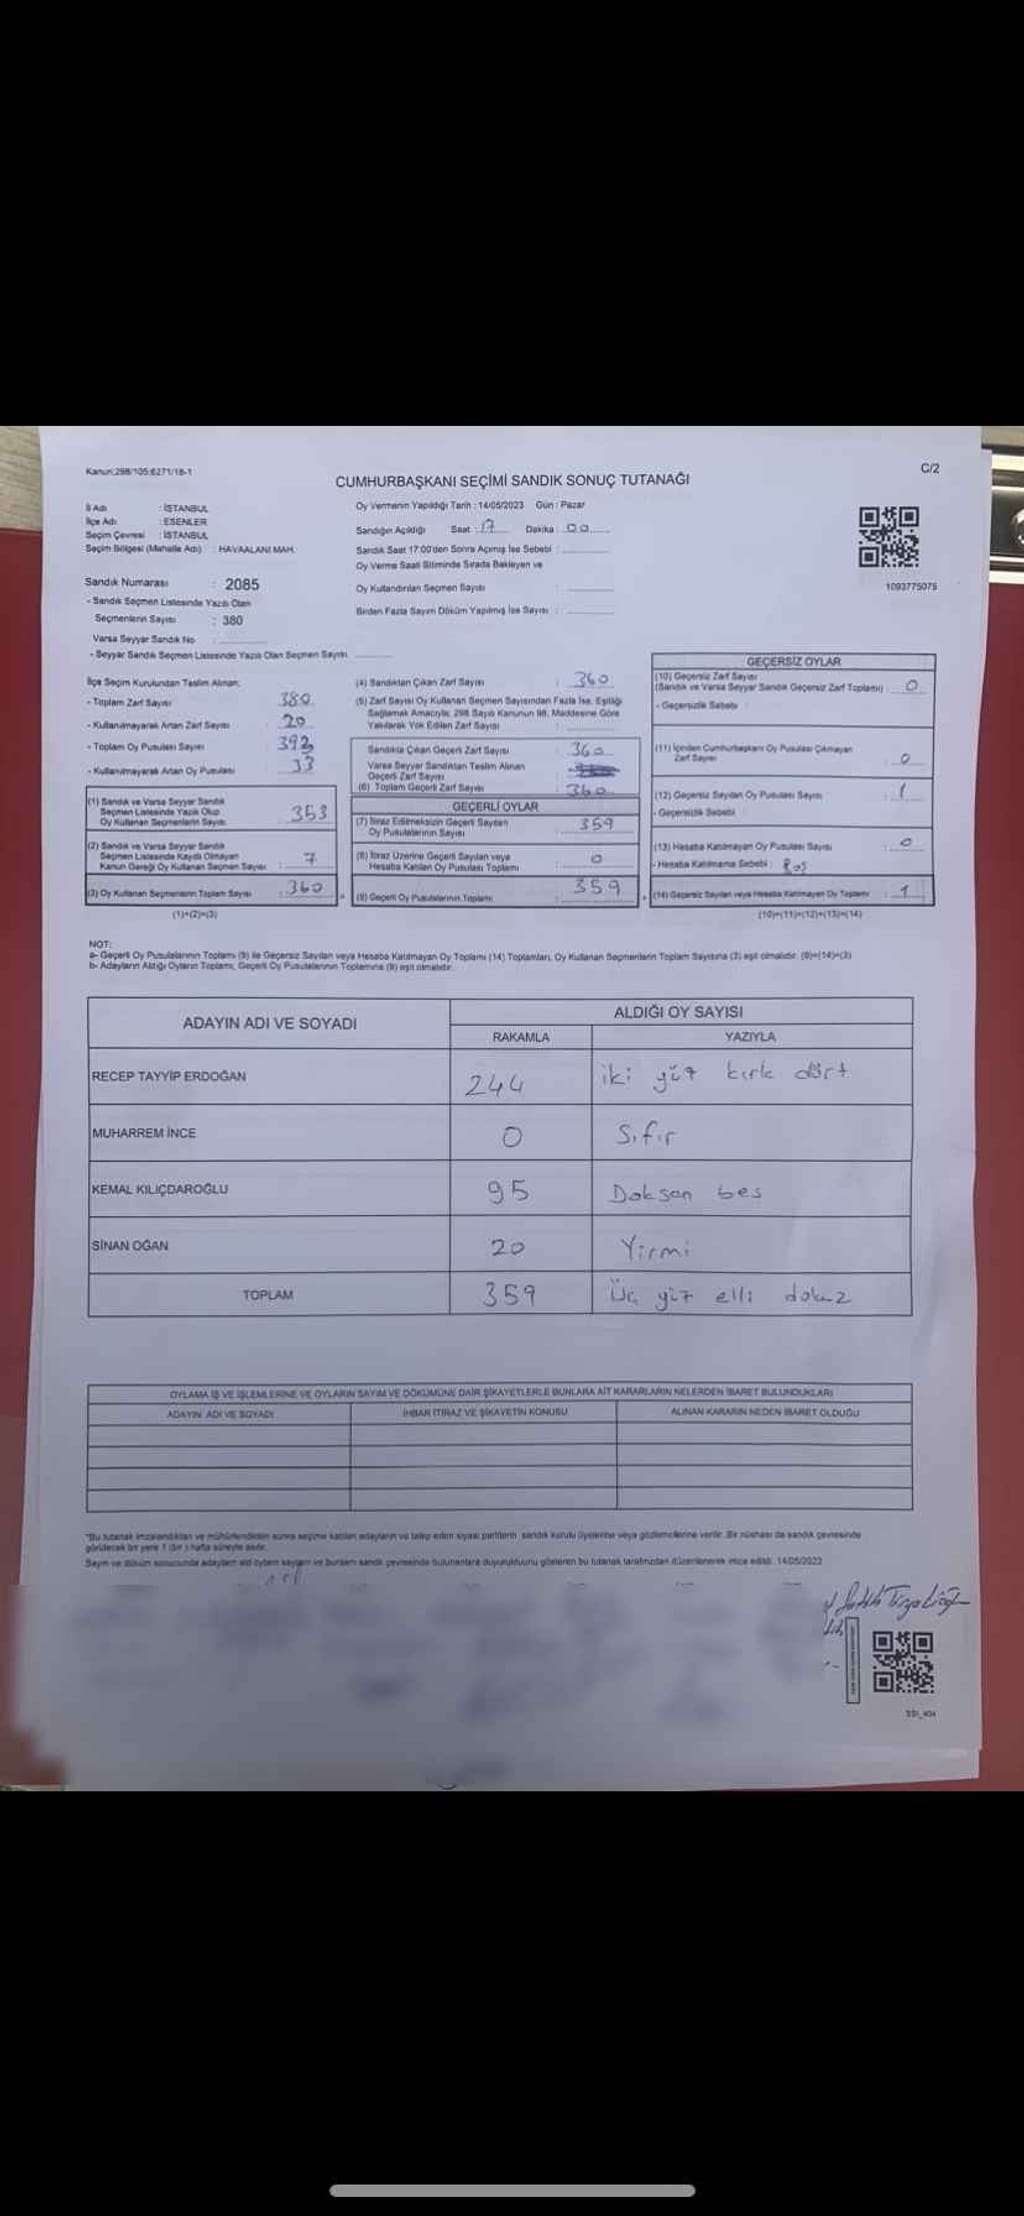 Kanun:298/105:6271/18-1
C/2
CUMHURBAŞKANI SEÇİMİ SANDIK SONUÇ TUTANAĞI
İl Adı : İSTANBUL
İlçe Adı : ESENLER
Seçim Çevresi : İSTANBUL
Seçim Bölgesi (Mahalle Adı) : HAVAALANI MAH.
Oy Vermenin Yapıldığı Tarih : 14/05/2023 Gün : Pazar
Sandığın Açıldığı Saat : 17 Dakika : 00
Sandık Saat 17:00'den Sonra Açılmış İse Sebebi :
Oy Verme Saati Bitiminde Sırada Bekleyen ve
Oy Kullandırılan Seçmen Sayısı :
Birden Fazla Sayım Döküm Yapılmış İse Sayısı :
1093775075
Sandık Numarası : 2085
- Sandık Seçmen Listesinde Yazılı Olan
Seçmenlerin Sayısı : 380
Varsa Seyyar Sandık No :
- Seyyar Sandık Seçmen Listesinde Yazılı Olan Seçmen Sayısı
İlçe Seçim Kurulundan Teslim Alınan;
- Toplam Zarf Sayısı : 380
- Kullanılmayarak Artan Zarf Sayısı : 20
- Toplam Oy Pusulası Sayısı : 393
- Kullanılmayarak Artan Oy Pusulası : 33
(1) Sandık ve Varsa Seyyar Sandık
Seçmen Listesinde Yazılı Olup
Oy Kullanan Seçmenlerin Sayısı : 353
(2) Sandık ve Varsa Seyyar Sandık
Seçmen Listesinde Kayıtlı Olmayan
Kanun Gereği Oy Kullanan Seçmen Sayısı : 7
(3) Oy Kullanan Seçmenlerin Toplam Sayısı : 360
(1)+(2)=(3)
(4) Sandıktan Çıkan Zarf Sayısı : 360
(5) Zarf Sayısı Oy Kullanan Seçmen Sayısından Fazla İse, Eşitliği
Sağlamak Amacıyla; 298 Sayılı Kanunun 98. Maddesine Göre
Yakılarak Yok Edilen Zarf Sayısı :
Sandıkta Çıkan Geçerli Zarf Sayısı : 360
Varsa Seyyar Sandıktan Teslim Alınan
Geçerli Zarf Sayısı :
(6) Toplam Geçerli Zarf Sayısı : 360
GEÇERLİ OYLAR
(7) İtiraz Edilmeksizin Geçerli Sayılan
Oy Pusulalarının Sayısı : 359
(8) İtiraz Üzerine Geçerli Sayılan veya
Hesaba Katılan Oy Pusulası Toplamı : 0
(9) Geçerli Oy Pusulalarının Toplamı : 359
GEÇERSİZ OYLAR
(10) Geçersiz Zarf Sayısı
(Sandık ve Varsa Seyyar Sandık Geçersiz Zarf Toplamı) : 0
- Geçersizlik Sebebi :
(11) İçinden Cumhurbaşkanı Oy Pusulası Çıkmayan
Zarf Sayısı : 0
(12) Geçersiz Sayılan Oy Pusulası Sayısı : 1
- Geçersizlik Sebebi :
(13) Hesaba Katılmayan Oy Pusulası Sayısı : 0
- Hesaba Katılmama Sebebi :
(14) Geçersiz Sayılan veya Hesaba Katılmayan Oy Toplamı : 1
(10)+(11)+(12)+(13)=(14)
NOT:
a- Geçerli Oy Pusulalarının Toplamı (9) ile Geçersiz Sayılan veya Hesaba Katılmayan Oy Toplamı (14) Toplamları, Oy Kullanan Seçmenlerin Toplam Sayısına (3) eşit olmalıdır. (9)+(14)=(3)
b- Adayların Aldığı Oyların Toplamı, Geçerli Oy Pusulalarının Toplamına (9) eşit olmalıdır.
ADAYIN ADI VE SOYADI
ALDIĞI OY SAYISI
RAKAMLA YAZIYLA
RECEP TAYYİP ERDOĞAN 244 iki yüz kırk dört
MUHARREM İNCE 0 Sıfır
KEMAL KILIÇDAROĞLU 95 Doksan bes
SİNAN OĞAN 20 Yirmi
TOPLAM 359 Üç yüz elli dokuz
OYLAMA İŞ VE İŞLEMLERİNE VE OYLARIN SAYIM VE DÖKÜMÜNE DAİR ŞİKAYETLERLE BUNLARA AİT KARARLARIN NELERDEN İBARET BULUNDUKLARI
ADAYIN ADI VE SOYADI İHBAR İTİRAZ VE ŞİKAYETİN KONUSU ALINAN KARARIN NEDEN İBARET OLDUĞU
*Bu tutanak imzalandıktan ve mühürlendikten sonra seçime katılan adayların ve talep eden siyasi partilerin sandık kurulu üyelerine veya gözlemcilerine verilir. Bir nüshası da sandık çevresinde
görülecek bir yere 1 (bir ) hafta süreyle asılır.
Sayım ve döküm sonucunda adayların aldığı oyların sayısını ve bunların sandık çevresinde bulunanlara duyurulduğunu gösteren bu tutanak tarafımızdan düzenlenerek imza edildi. 14/05/2023